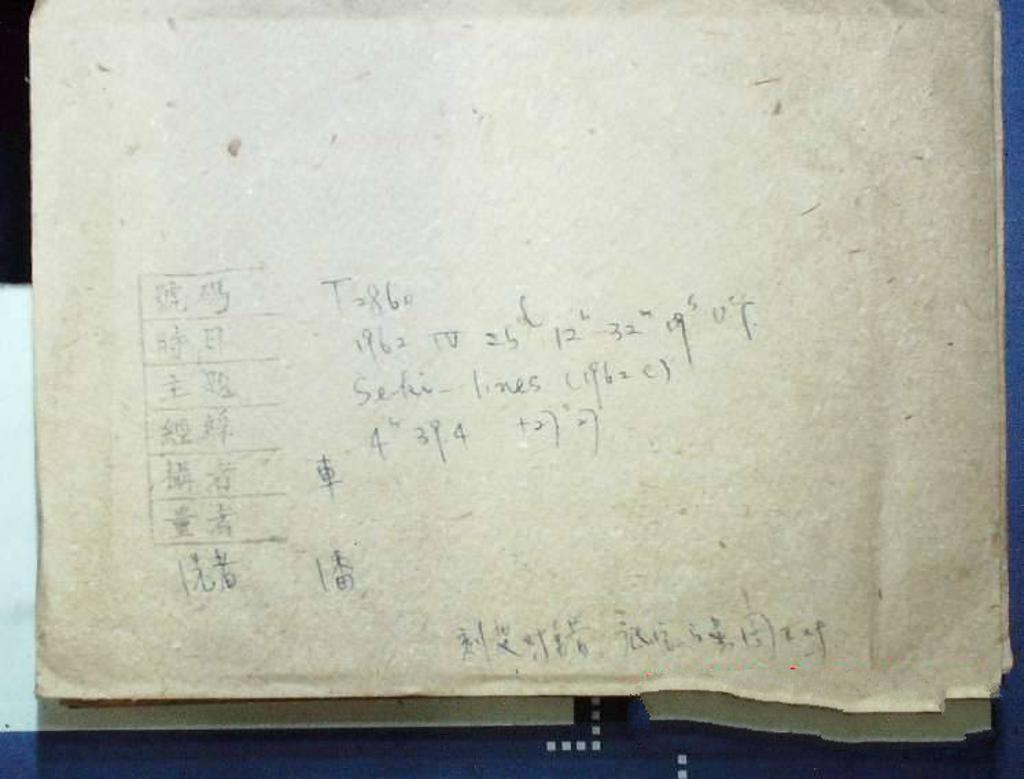 號碼 T2860
時日 1962 IV 25d 12h 32m 19s U.T.
主題 Seki-lines (1962c)
經緯 4h 39.4 +27°27'
攝者 車
量者
洗者 潘